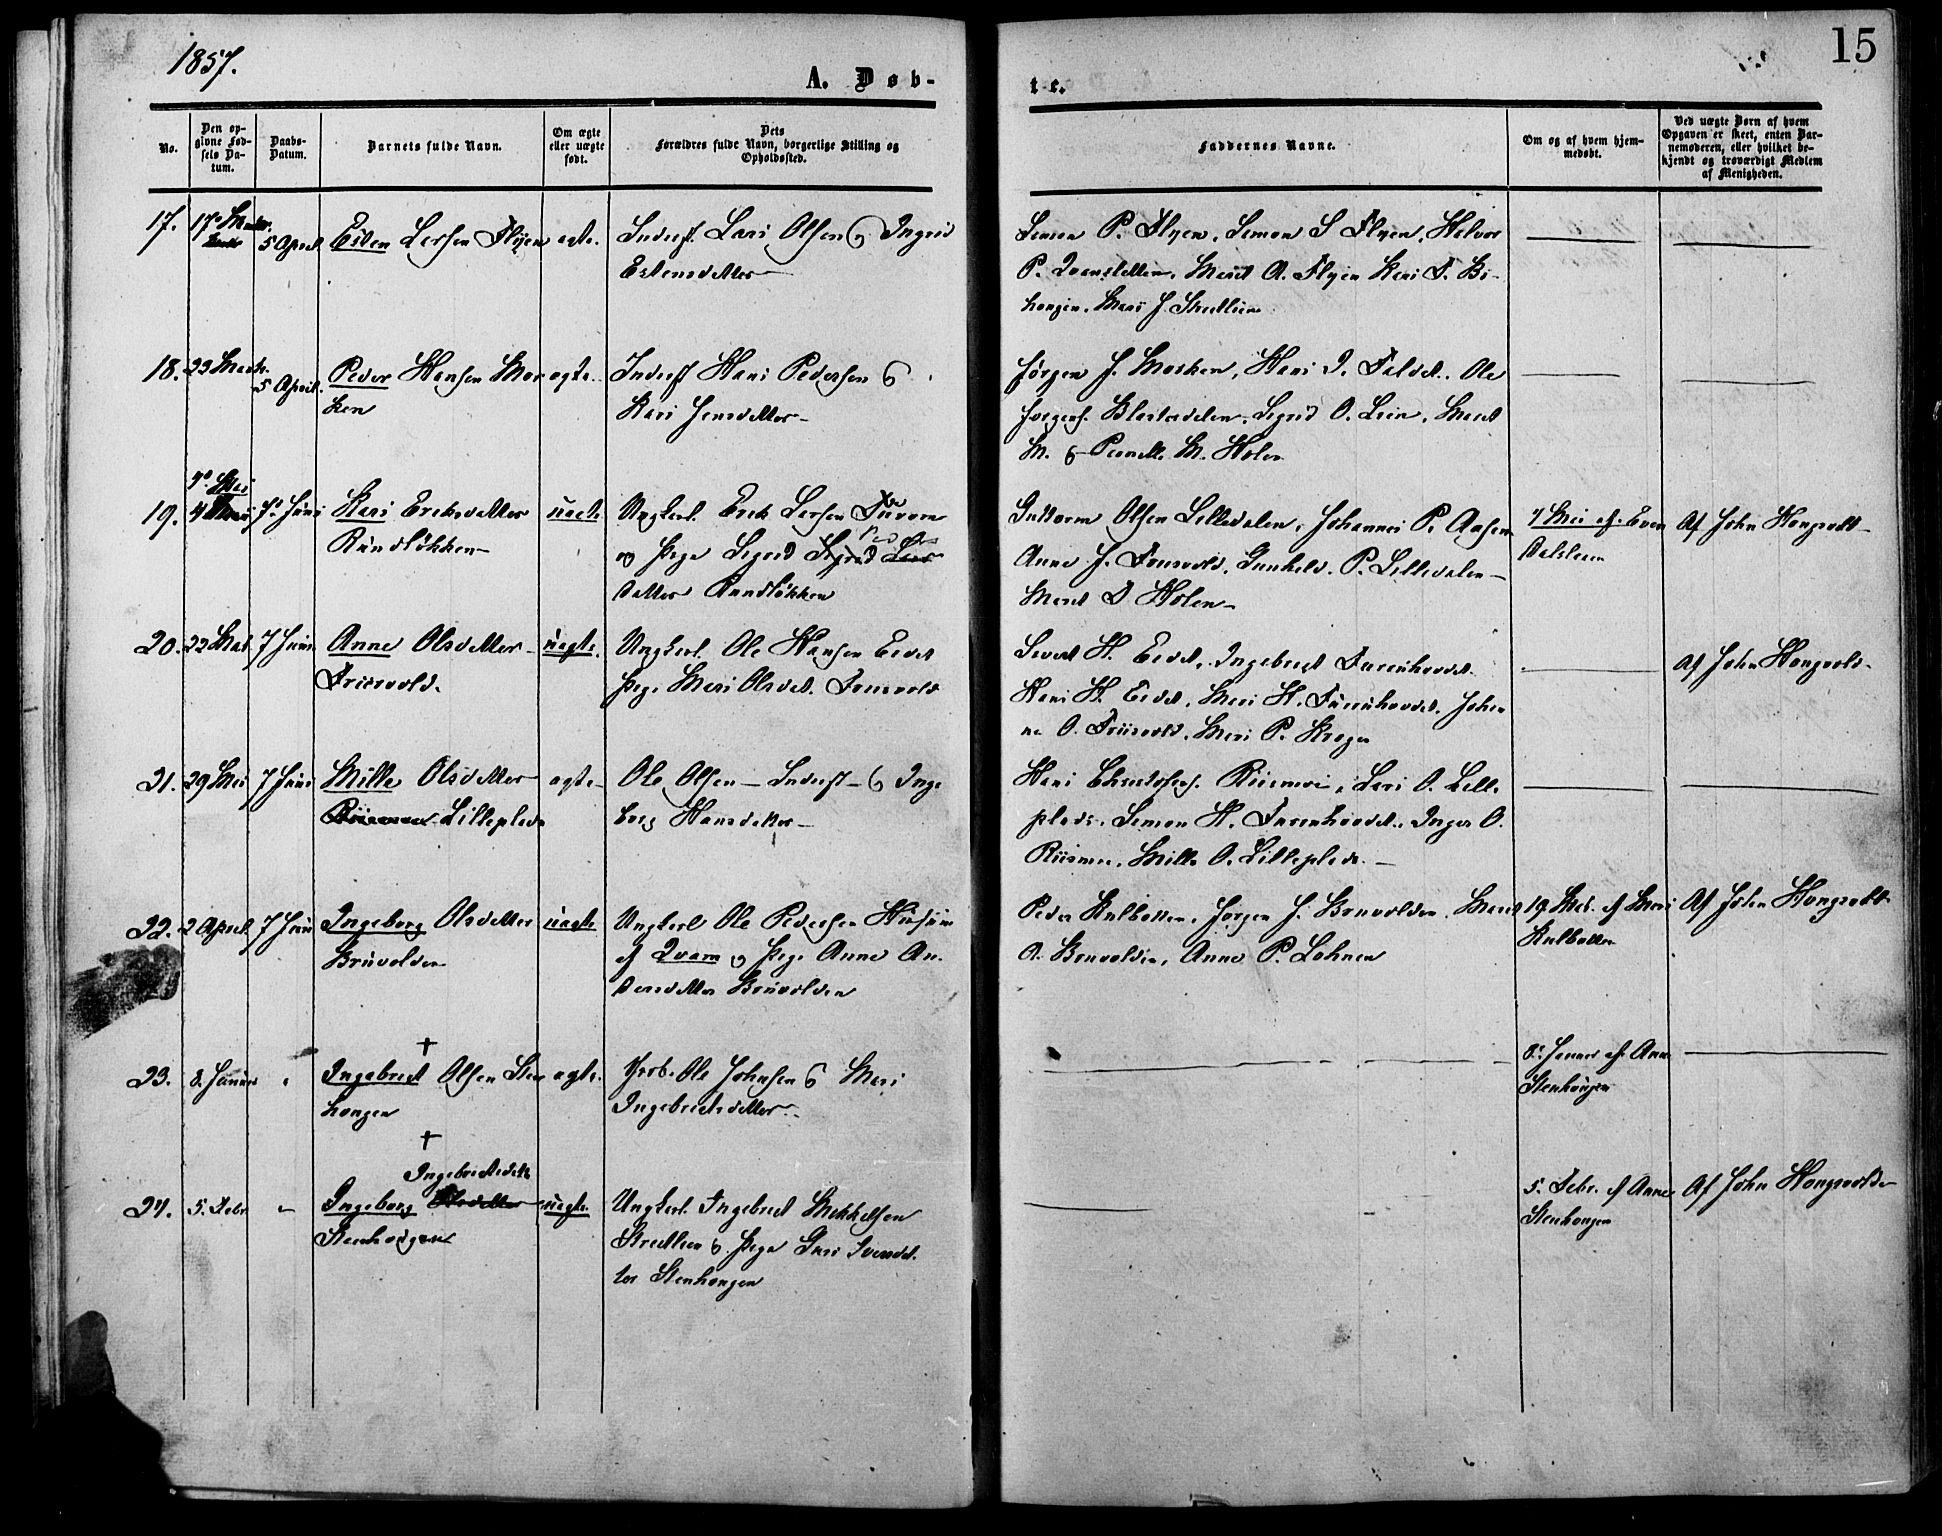 1857.
15
A. Døb-
te.
No.
Den op-
givne Fød-
sels Da-
tum.
Daabs-
Datum.
Barnets fulde Navn.
Om ægte
eller uægte
født.
Dets
Forældres fulde Navn, borgerlige Stilling og
Opholdssted.
Faddernes Navne.
Om og af hvem hjem-
medøbt.
Ved uægte Børn af hvem
Opgaven er skeet, enten Bar-
nemoderen, eller hvilket be-
kjendt og troværdigt Medlem
af Menigheden.
17. 17 Marts 5 April Esten Larsen Flyen ægte. Inderst Lars Olsen og Ingrid
Estensdatter
Simon P. Flyen, Simon S Flyen, Halvor
P. Marit A. Flyen Kari T. Bi-
hougen, Mari J. Streitlien
18. 23 Marts 5 April. Peder Hansen Mos- ægte. Inderst Hans Pedersen &
ken
Kari Jensdatter
Jørgen J. Mosken, Hans Ole
Sigrid O. Lien, Marit
M. & Pernille M. Holen
19. 7 Mai 7 Juni Kari Eriksdatter uægte Ungkarl Erik Larsen
Rundløkken
og Pige Sigrid Ped
datter Rundløkken
Guttorm Olsen Lilledalen, Johannes P. Aasen
Anne J. Gunhild P. Lilledalen
Marit Holen
7 Mai af Even
Dalslien
Af John Hongvolt
20. 22 Mai 7 Juni Anne Olsdatter uægte. Ungkarl Ole Hansen Eidet
Friisvold.
Pige Mari Olsdat. Friisvold
Sivert H. Eidet, Ingebrigt Furuhovdet.
Hans H. Eidet, Mari H. Furuhovdet, Johan
ne O. Friisvold, Mari P. Kroger
Af John Hongvold.
21. 29 Mai 7 Juni Mille Olsdatter ægte Ole Olsen Inderst & Inge
Lilleplads
borg Hansdatter
Hans Christophers. Riismoe, Lars O. Lille
plads, Simon H. Furuhovdet, Inger O.
Riismoe, Mille O. Lilleplads.
22. 2 April 7 Juni Ingeborg Olsdatter uægte Ungkarl Ole Pedersen
Bruvolden
af Qvam og Pige Anne An-
dersdatter Bruvolden
Peder Kulbotten, Jørgen J. Bruvolden, Marit
A. Bruvolden, Anne P. Lohnen
19 Mai af Mari
Kulbotten
Af John Hongvolt
23. 8. Januar " Ingebrigt Olsen Sten ægte. Ole Johnsen & Mari
hougen
Ingebrigtsdatter.
8 Januar af Anne
Stenhougen
24. 5. Febr. " Ingeborg Ingebrigtsdatter uægte. Ungkarl Ingebrigt Mikkelsen
Stenhougen
Streitlien & Pige Guri Svendsdat-
ter Stenhougen
5. Febr. af Anne
Stenhougen
Af John Hongvold